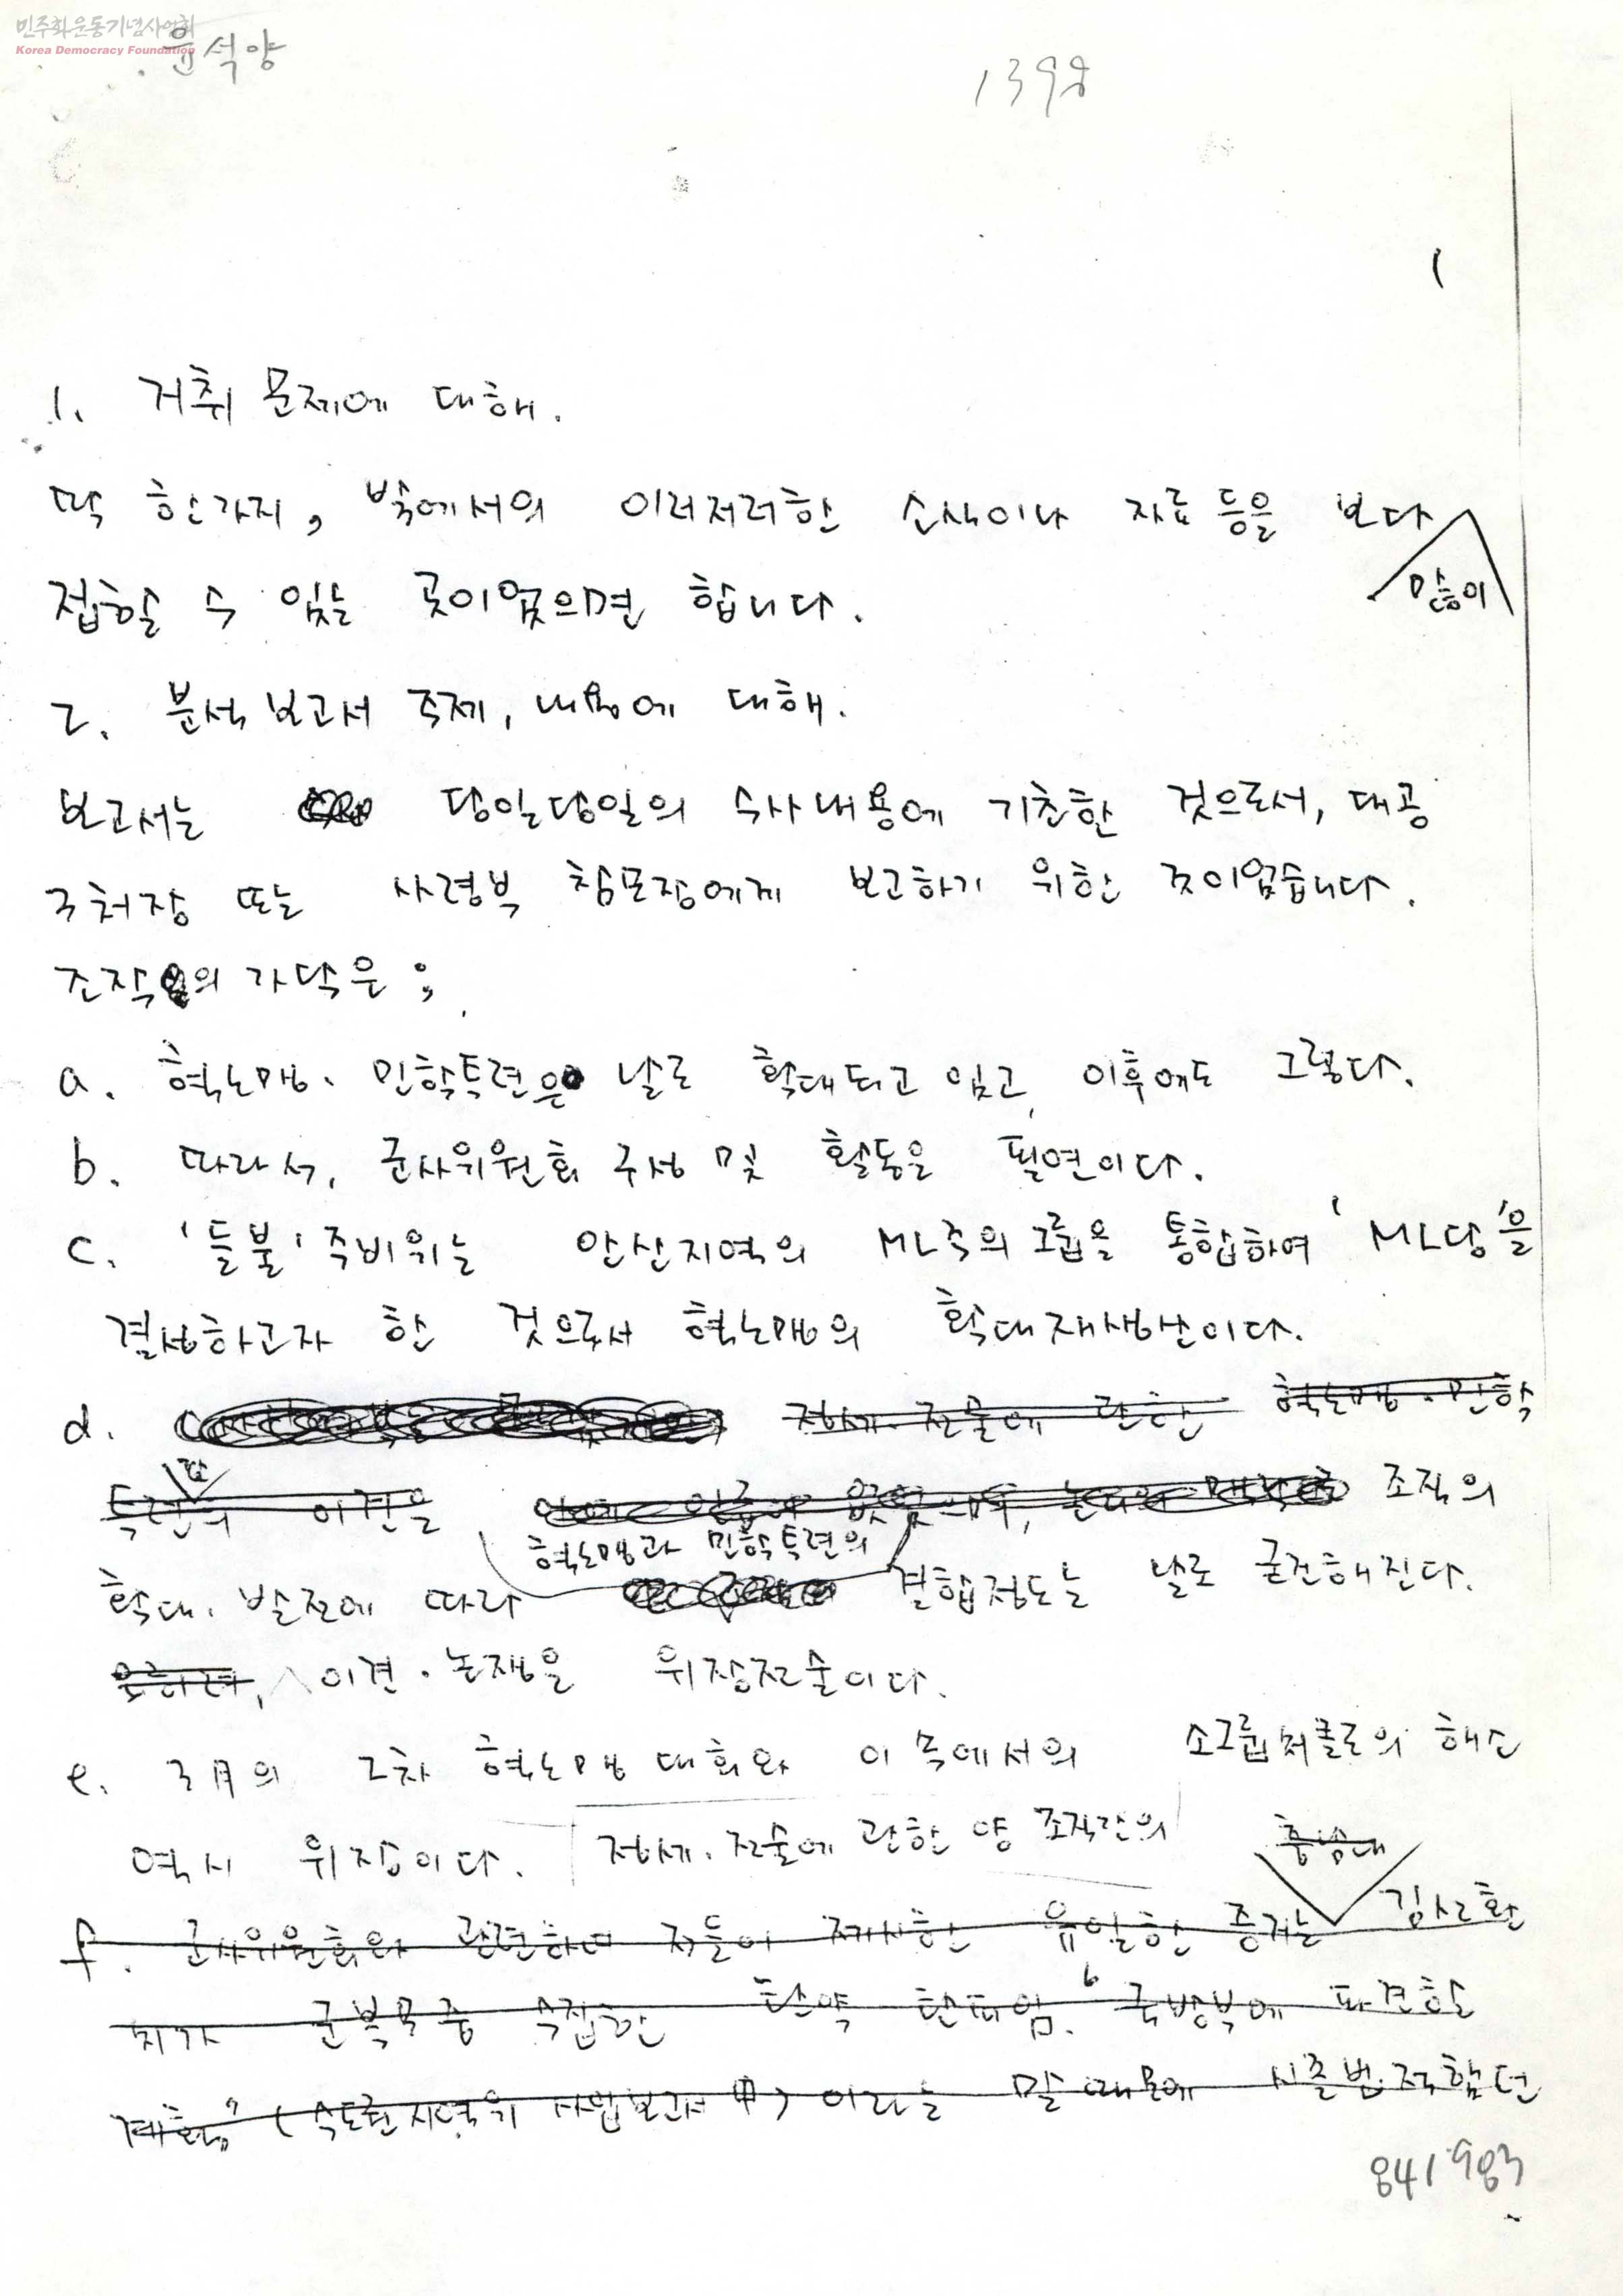 민주화운동기념사업회
Korea Democracy Foundation
윤석양
1398
1
1. 거취 문제에 대해.
딱 한가지, 밖에서의 이러저러한 소식이나 자료 등을 보다
많이
접할 수 있는 곳이었으면 합니다.
2. 분석보고서 주제, 내용에 대해.
보고서는 당일당일의 수사내용에 기초한 것으로서, 대공
3처장 또는 사령부 참모장에게 보고하기 위한 것이었습니다.
조직의 가닥은;
a. 혁노맹·민학투련은 날로 확대되고 있고, 이후에도 그렇다.
b. 따라서, 군사위원회 구성 및 활동은 필연이다.
c. '들불' 준비위는 안산지역의 ML주의그룹을 통합하여 'ML당'을
결성하고자 한 것으로서 혁노맹의 확대재생산이다.
d. 정세·전술에 관한 혁노맹·민학
간
투련의 이견을 조직의
혁노맹과 민학투련의
확대·발전에 따라 결합정도는 날로 굳건해진다.
이견·논쟁은 위장전술이다.
e. 3月의 2차 혁노맹 대회와 이 속에서의 소그룹써클로의 해산
역시 위장이다. 정세·전술에 관한 양 조직간의
충남대
f. 군사위원회와 관련하여 저들이 제시한 유일한 증거는 김삼환
치가 군복무중 수집한 탄약 탄피임. "국방부에 파견할
계획" (수도권지역위 사업보고서 中) 이라는 말 때문에
841983